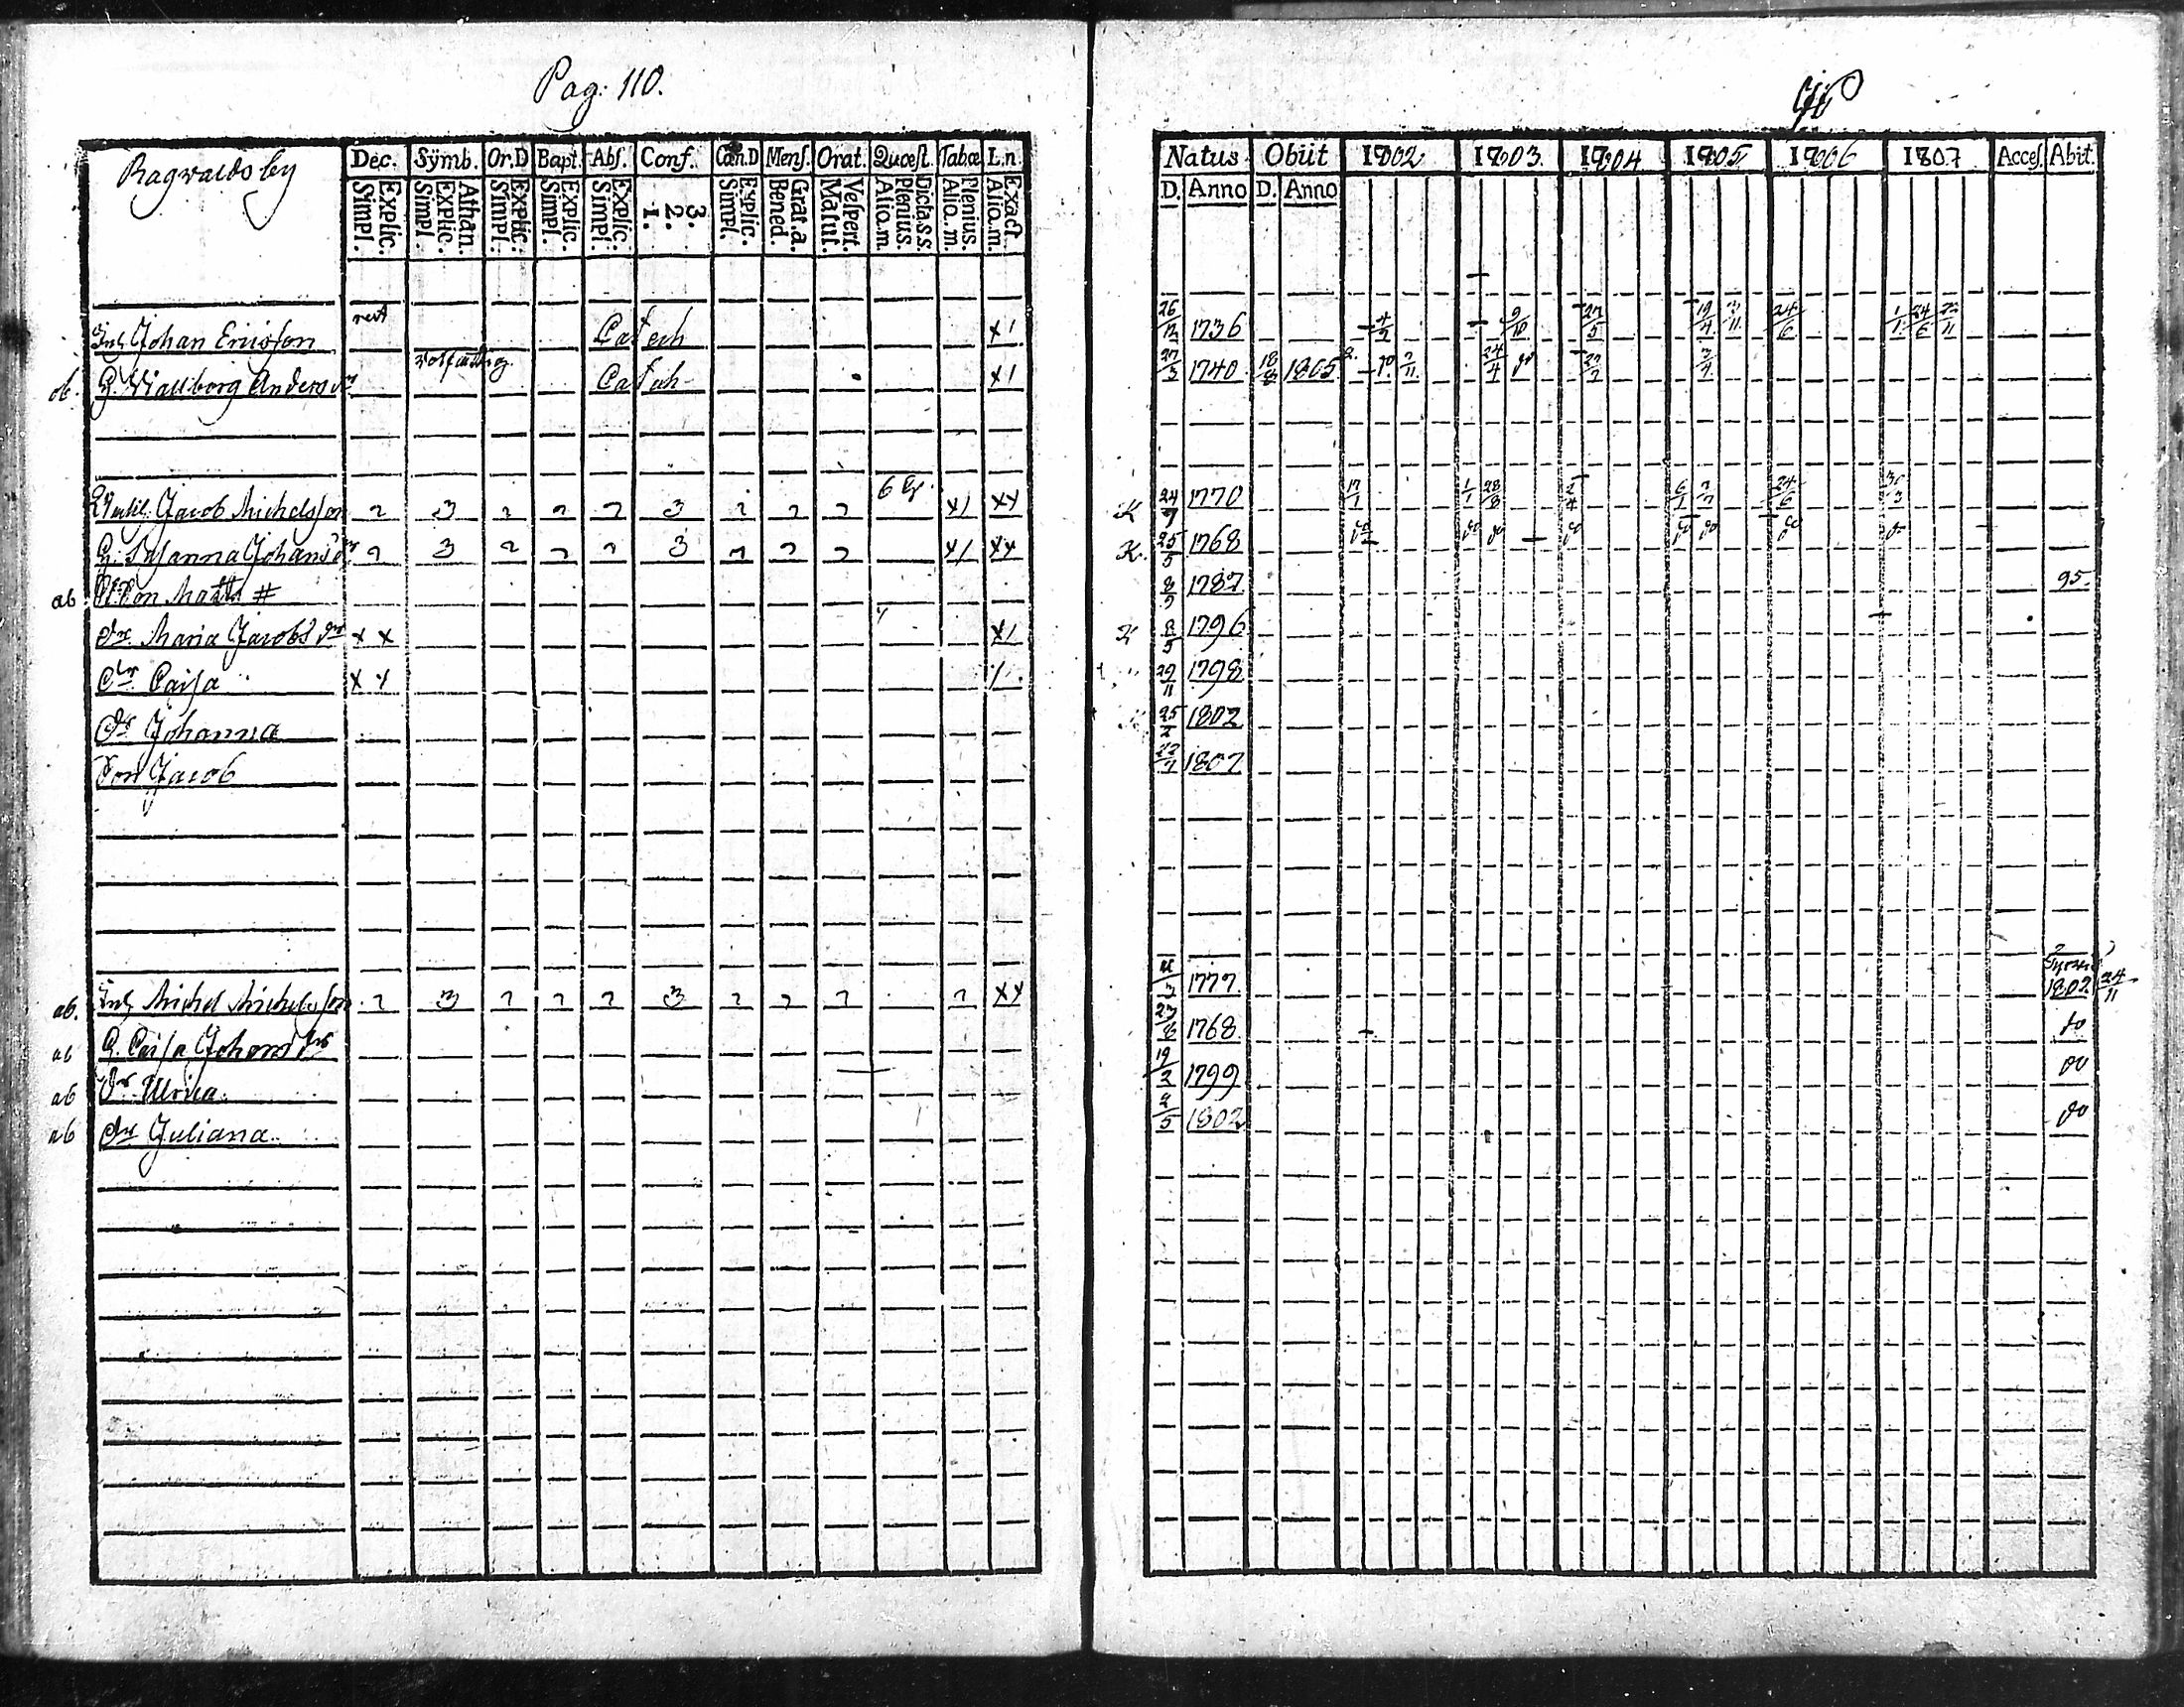 Pag: 110.
Ragwaldsby
Dec. Sÿmb. Or.D Bapt. Abſ. Conf. Can.D Menſ. Orat. Quœſt. Tabœ L.n
Explic. Simpl. Athan. Explic. Simpl. Explic. Simpl. Explic. Simpl. Explic. Simpl. 3. 2. 1. Explic. Simpl. Grat.a. Bened. Veſpert. Matut. Dicta.s.s. Plenius. Alio.m. Plenius. Alio.m. Exact. Alio.m.
Inh Johan Ericsson Catech x1
ob. H. Wallborg Anders dr Catech x1
Jacob Michelsson 2 3 2 2 2 3 2 2 2 x1 xx
H. Susanna Johans dr 2 3 2 2 2 3 2 2 2 x1 xx
ab Son Matts #
dr Maria Jacobs dr x x x1
dr Caisa x x
dr Johanna
Son Jacob
ab. Inh Michel Michelsson 2 3 2 2 2 3 2 2 2 2 xx
ab H. Caisa Johans dr
ab dr Ulrica
ab dr Juliana
Natus Obiit 1802 1803 1804 1805 1806 1807 Acceſ. Abit.
D. Anno D. Anno
26/12 1736 4/5 9/10 27/5 24/6 1/1 24/6
27/3 1740 18/8 1805 7/11 24/4 do
K 24/7 1770 17/1 1/1 28/8 24/6
K. 25/5 1768 do do do do do do do do
8/9 1787 95.
K 8/5 1796
29/11 1798
25/2 1802
1807
1777 1802 24/11
23/8 1768 do
19/2 1799 do
2/5 1802 do